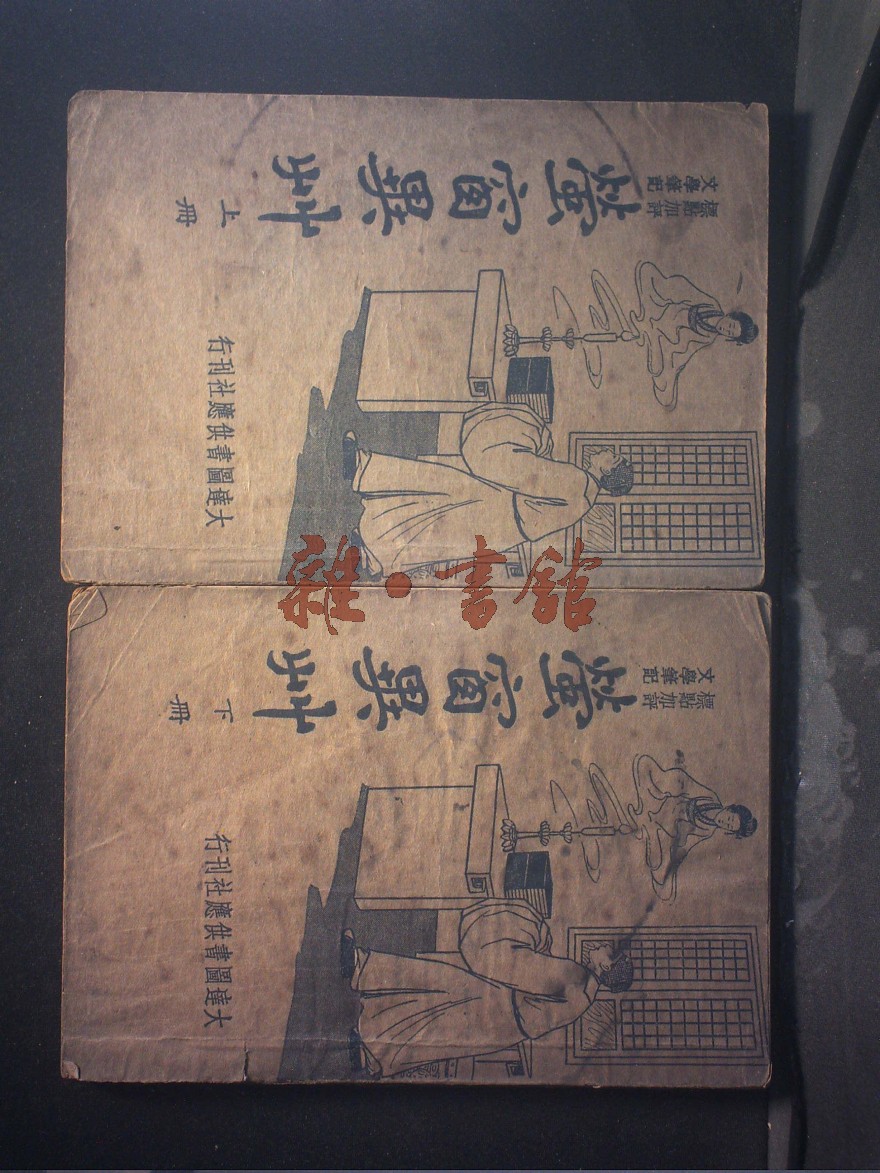 標點加評
文學筆記
螢窗異艸
上冊
大達圖書供應社刊行
雜·書館
標點加評
文學筆記
螢窗異艸
下冊
大達圖書供應社刊行